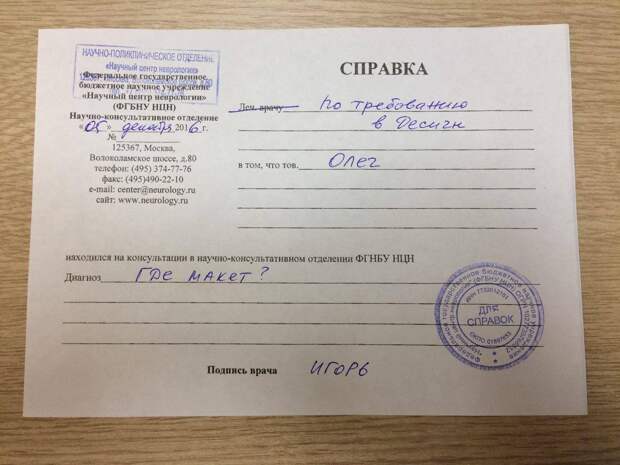 НАУЧНО-ПОЛИКЛИНИЧЕСКОЕ ОТДЕЛЕНИЕ
«Научный центр неврологии»
Федеральное государственное
бюджетное научное учреждение
«Научный центр неврологии»
(ФГБНУ НЦН)
Научно-консультативное отделение
«05» декабря 2016 г.
№
125367, Москва,
Волоколамское шоссе, д.80
телефон: (495) 374-77-76
факс: (495)490-22-10
e-mail: center@neurology.ru
сайт: www.neurology.ru
СПРАВКА
Леч. врачу По требованию
в Десигн
в том, что тов. Олег
находился на консультации в научно-консультативном отделении ФГНБУ НЦН
Диагноз ГДе макет?
ДЛЯ
СПРАВОК
Подпись врача ИГОРЬ